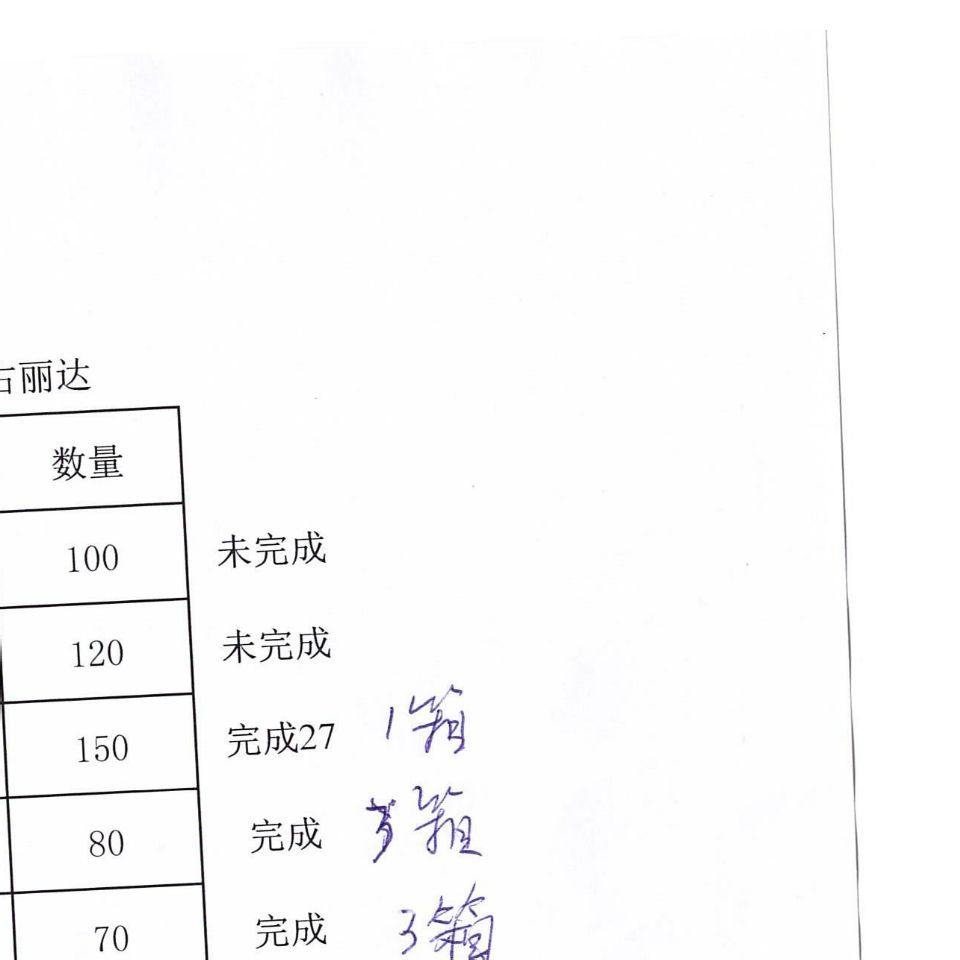 丽达
数量
100 未完成
120 未完成
150 完成27 1箱
80 完成 箱
70 完成 3箱